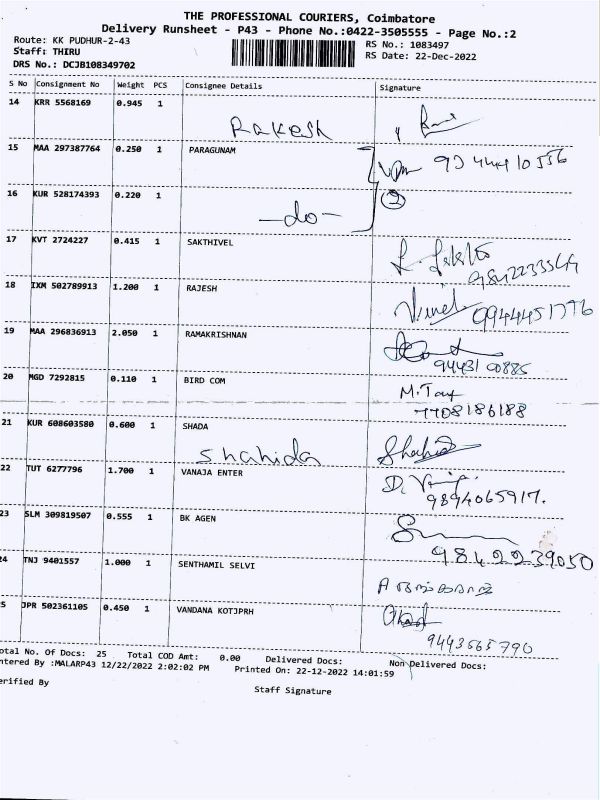 THE PROFESSIONAL COURIERS, Coimbatore
Delivery Runsheet - P43 - Phone No.:0422-3505555 - Page No.:2
Route: KK PUDHUR-2-43
Staff: THIRU
DRS No.: DCJB108349702
RS No.: 1083497
RS Date: 22-Dec-2022
S No Consignment No Weight PCS Consignee Details Signature
14 KRR 5568169 0.945 1
Rakesh
15 MAA 297387764 0.250 1 PARAGUNAM
16 KUR 528174393 0.220 1
-do-
2
17 KVT 2724227 0.415 1 SAKTHIVEL
18 IXM 502789913 1.200 1 RAJESH
0944451776
19 MAA 296836913 2.050 1 RAMAKRISHNAN
20 MGD 7292815 0.110 1 BIRD COM
7708186188
21 KUR 608603580 0.600 1 SHADA
Shahida
22 TUT 6277796 1.700 1 VANAJA ENTER
9894065917.
23 SLM 309819507 0.555 1 BK AGEN
9842239050
24 TNJ 9401557 1.000 1 SENTHAMIL SELVI
25 JPR 502361105 0.450 1 VANDANA KOTJPRH
9443565790
otal No. Of Docs: 25 Total COD Amt: 0.00 Delivered Docs: Non Delivered Docs:
ntered By :MALARP43 12/22/2022 2:02:02 PM Printed On: 22-12-2022 14:01:59
erified By
Staff Signature